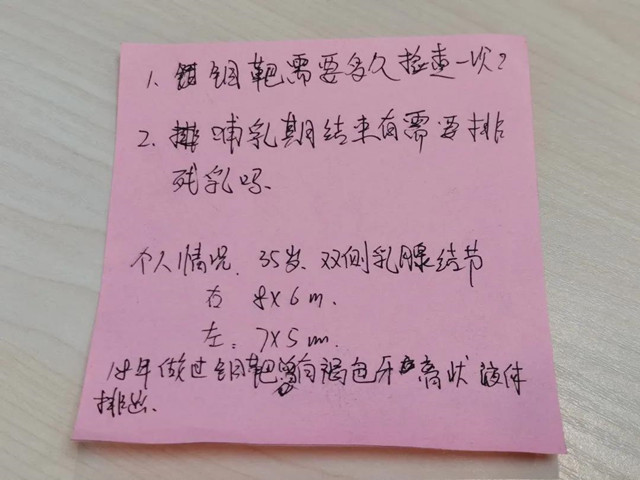 1. 钼靶需要多久检查一次?
2. 哺乳期结束有需要排
残乳吗.
个人情况. 35岁. 双侧乳腺结节
右 8x6m.
左: 7x5m.
18年做过钼靶曾有褐色牙膏状液体
排出.